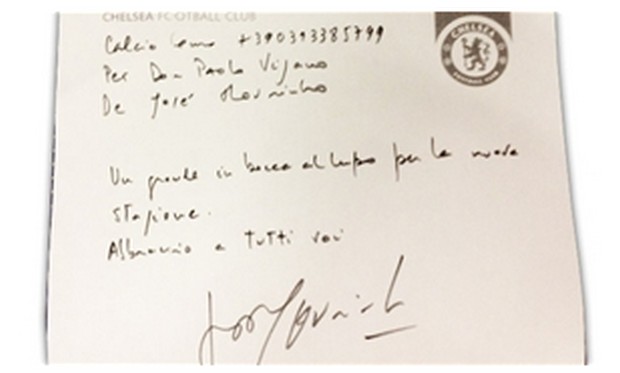 CHELSEA FC OTBALL CLUB
Calcio Como +390313385799
CHELSEA
FOOTBALL CLUB
Per Don Paolo Vigano
De José Mourinho
Un grande in bocca al lupo per la nuova
stagione.
Abbraccio a tutti voi